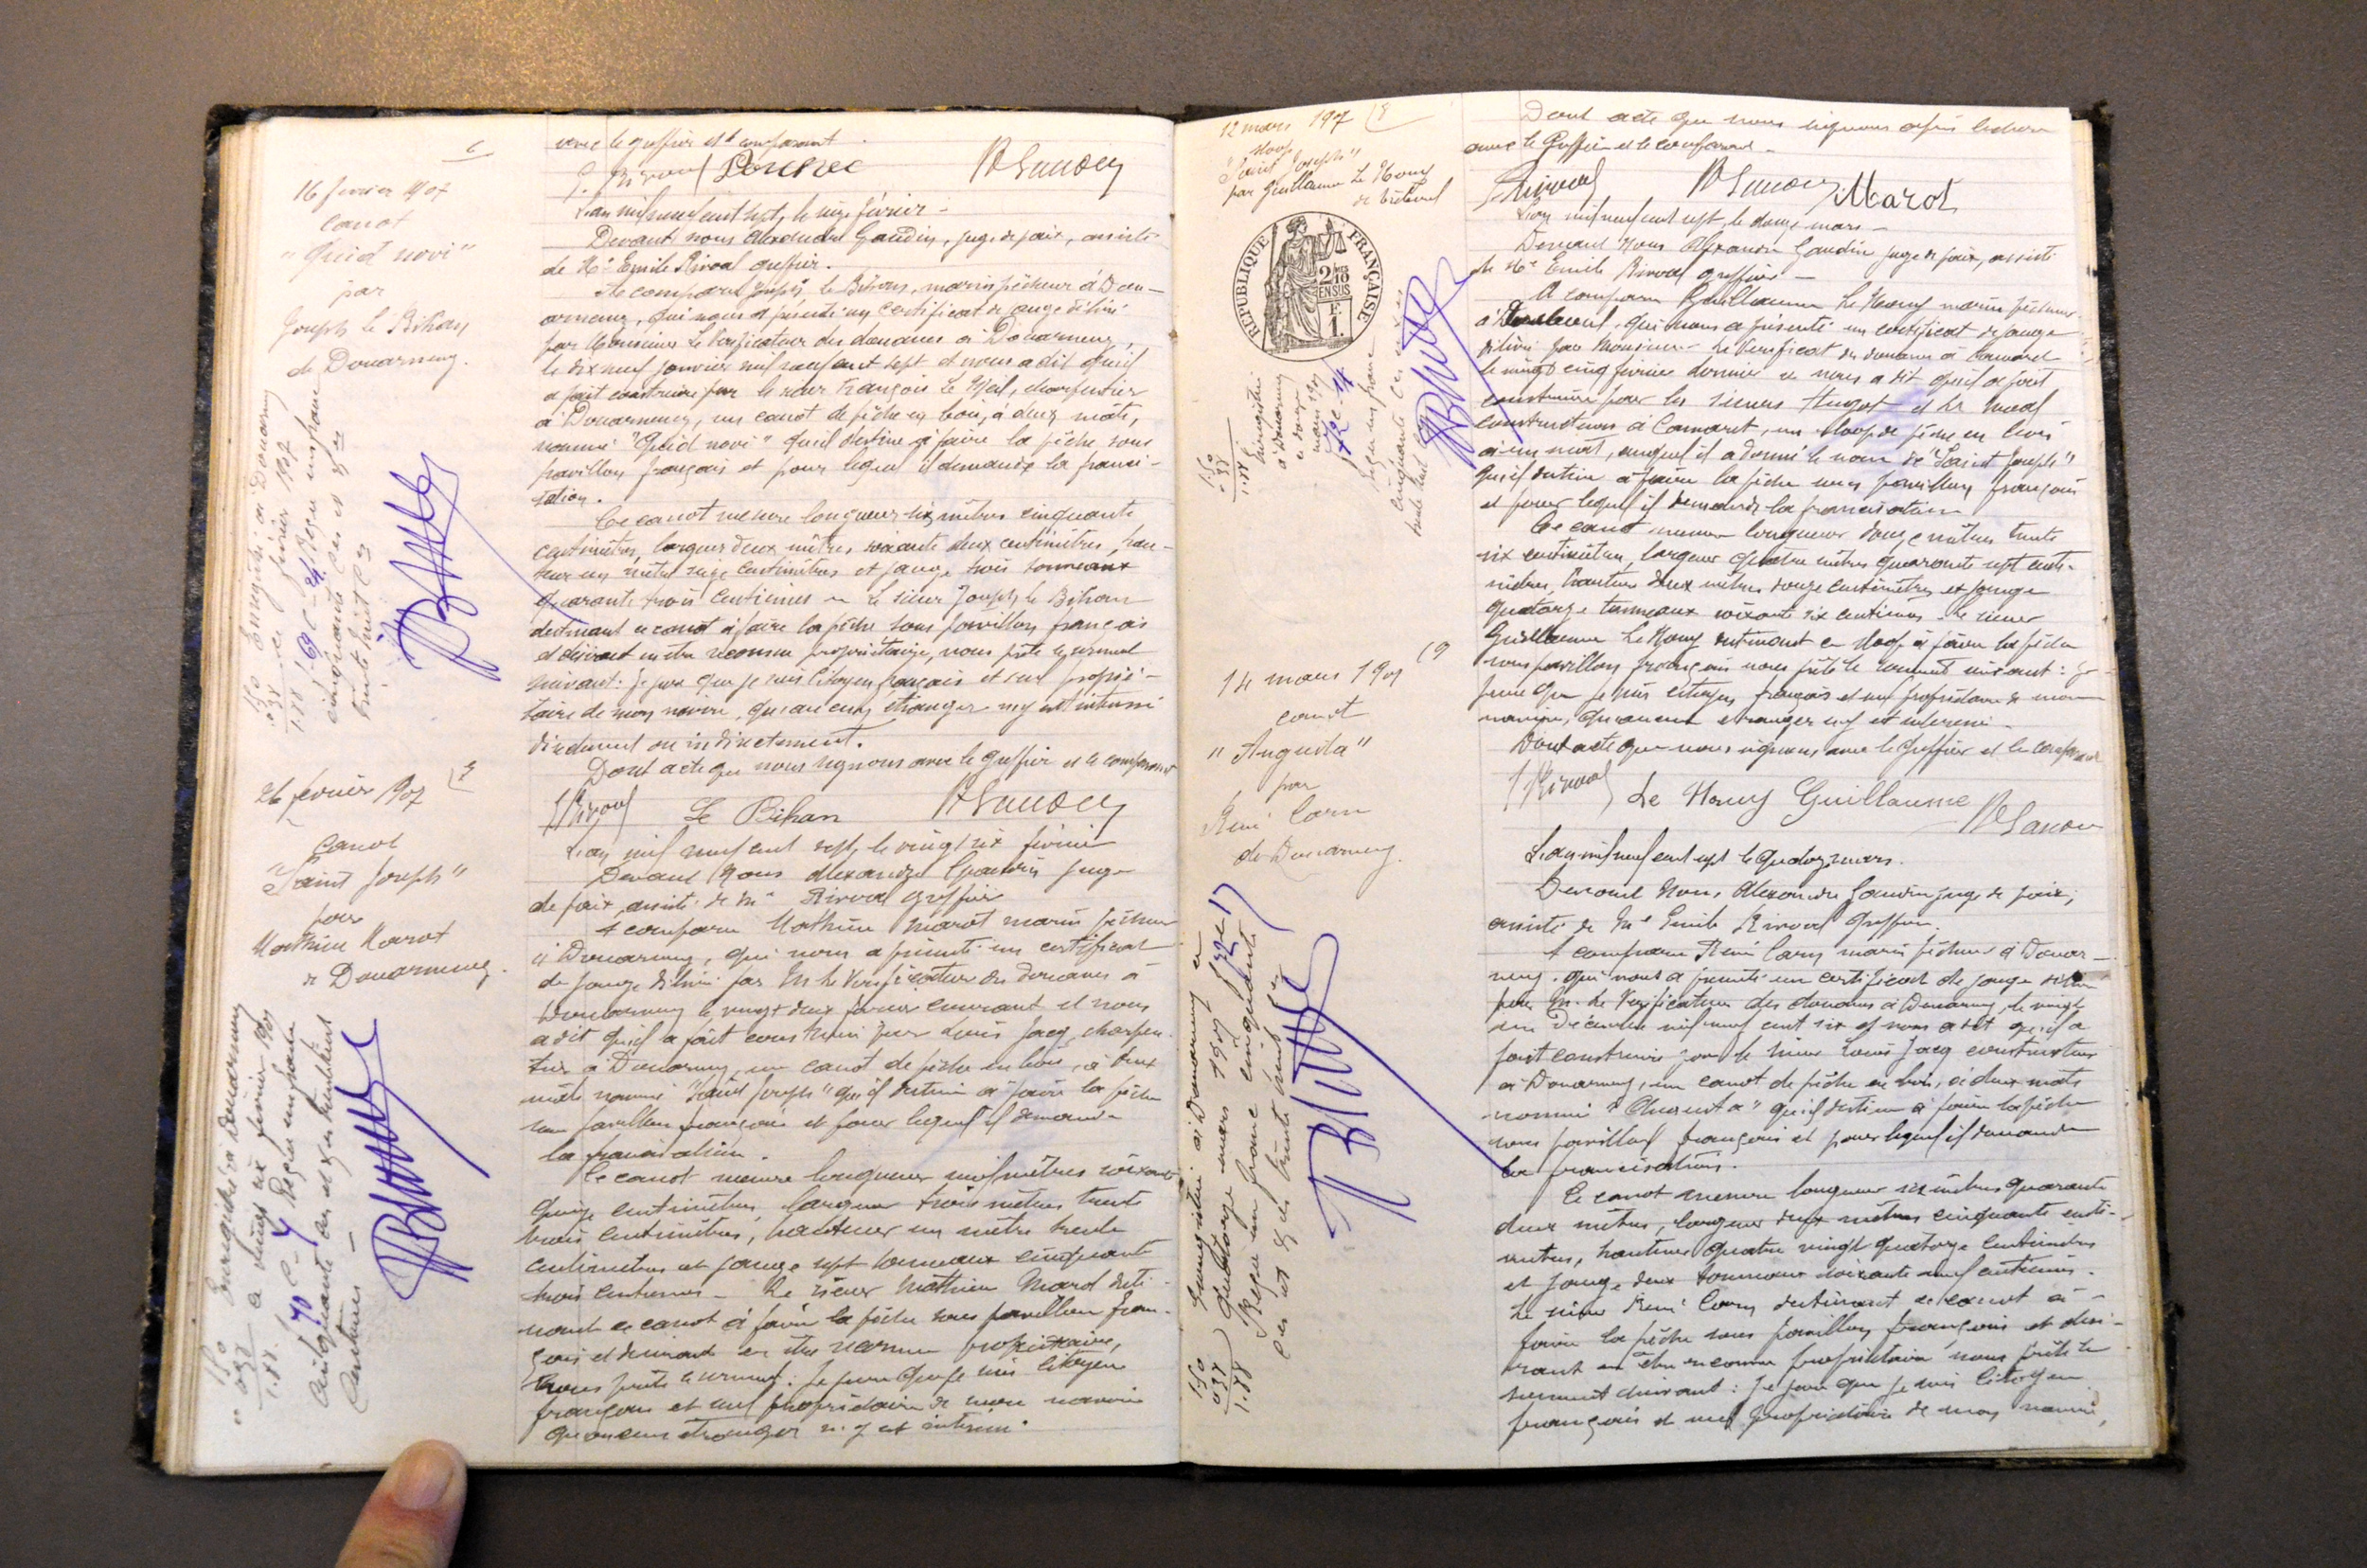 6
16 février 1907
canot
"Quid novi"
par
Joseph Le Bihan
de Douarnenez.
Enregistré à Douarnenez
février 1907
Reçu un franc
cinquante ces et
trente huit ces
1.50
.38
1.88
26 février 1907
7
Canot
"Saint Joseph"
par
Mathieu Marot
de Douarnenez.
Enregistré à Douarnenez
le vingt six février 1907
70 C. 4 Reçu un franc
cinquante ces et trente huit
Centimes
1.50
0.38
1.88
avec le greffier et le comparant
E. Rivoal A Gaudin
L'an mil neuf cent sept, le seize février -
Devant nous Alexandre Gaudin, juge de paix, assisté
de Me Emile Rivoal greffier.
A comparu Joseph Le Bihan, marin pêcheur à Douar-
nenez, qui nous a présenté un certificat de jauge délivré
par Monsieur Le Vérificateur des douanes à Douarnenez,
le dix neuf janvier mil neuf cent sept et nous a dit qu'il
a fait construire par le sieur François Le charpentier
à Douarnenez, un canot de pêche en bois, à deux mâts,
nommé "Quid novi" qu'il destine à faire la pêche sous
pavillon français et pour lequel il demande la franci-
sation.
Ce canot mesure longueur six mètres cinquante
centimètres, largeur deux mètres soixante deux centimètres, hau-
teur un mètre seize centimètres et jauge trois tonneaux
quarante trois centièmes - Le sieur Joseph Le Bihan
destinant ce canot à faire la pêche sous pavillon français
et désirant en être reconnu propriétaire, nous prête le serment
suivant: Je jure que je suis citoyen français et seul proprié-
taire de mon navire, qu'aucun étranger n'y est intéressé
directement ou indirectement.
Dont acte que nous signons avec le greffier et le comparant
E Rivoal Le Bihan A Gaudin
L'an mil neuf cent sept, le vingt six février
Devant Nous Alexandre Gaudin juge
de paix, assisté de Me Rivoal greffier
A comparu Mathieu Marot marin pêcheur
à Douarnenez, qui nous a présenté un certificat
de jauge délivré par M. Le Vérificateur des Douanes à
Douarnenez le vingt deux février courant et nous
a dit qu'il a fait construire par Louis Jacq, charpen-
tier à Douarnenez, un canot de pêche en bois, à deux
mâts nommé "Saint Joseph" qu'il destine à faire la pêche
sous pavillon français et pour lequel il demande
la francisation.
Ce canot mesure longueur neuf mètres soixante
quinze centimètres, largeur trois mètres trente
trois centimètres, hauteur un mètre trente
centimètres et jauge sept tonneaux cinquante
trois centièmes - Le sieur Mathieu Marot desti-
nant ce canot à faire la pêche sous pavillon fran-
çais et désirant en être reconnu propriétaire,
nous prête le serment: Je jure que je suis citoyen
français et seul propriétaire de mon navire
qu'aucun étranger n'y est intéressé.
12 mars 1907
8
sloop
"Saint Joseph"
par Guillaume Le Houry
RÉPUBLIQUE FRANÇAISE
2/10 EN SUS
F.
1.
Enregistré
à Douarnenez
le douze
mars 1907
Reçu un franc
cinquante ces et
trente huit ces
1.50
.38
1.88
14 mars 1907
9
canot
"Augusta"
par
René Carn
de Douarnenez.
Enregistré à Douarnenez le
quatorze mars 1907
Reçu un franc cinquante
ces et trente huit ces
1.50
0.38
1.88
Dont acte que nous signons après lecture
avec le Greffier et le comparant -
E Rivoal A Gaudin Marot
L'an mil neuf cent sept, le douze mars -
Devant Nous Alexandre Gaudin juge de paix, assisté
de Me Emile Rivoal greffier -
A comparu Guillaume Le Houry marin pêcheur
à qui nous a présenté un certificat de jauge
délivré par Monsieur Le Vérificat des douanes à Camaret
le vingt cinq février dernier et nous a dit qu'il a fait
construire par les sieurs et Le
constructeurs à Camaret, un sloop de pêche en bois
à un mât, auquel il a donné le nom de "Saint Joseph"
qu'il destine à faire la pêche sous pavillon français
et pour lequel il demande la francisation
Ce canot mesure longueur douze mètres trente
six centimètres, largeur quatre mètres quarante sept centi-
mètres, hauteur deux mètres douze centimètres et jauge
quatorze tonneaux soixante six centièmes. Le sieur
Guillaume Le Houry destinant ce sloop à faire la pêche
sous pavillon français nous prête le serment suivant: Je
jure que je suis citoyen français et seul propriétaire de mon
navire, qu'aucun étranger n'y est intéressé -
Dont acte que nous signons avec le Greffier et le comparant
E Rivoal Le Houry Guillaume A Gaudin
L'an mil neuf cent sept le quatorze mars.
Devant Nous, Alexandre Gaudin juge de paix,
assisté de Me Emile Rivoal Greffier.
A comparu René Carn marin pêcheur à Douar-
nenez, qui nous a présenté un certificat de jauge délivré
par M. Le Vérificateur des douanes à Douarnenez, le vingt
Décembre mil neuf cent six et nous a dit qu'il a
fait construire par le sieur Louis Jacq constructeur
à Douarnenez, un canot de pêche en bois, à deux mâts
nommé "Augusta" qu'il destine à faire la pêche
sous pavillon français et pour lequel il demande
la francisation.
Ce canot mesure longueur six mètres quarante
deux mètres, largeur deux mètres cinquante centi-
mètres, hauteur quatre vingt quatorze centimètres
et jauge deux tonneaux soixante neuf centièmes.
Le sieur René Carn destinant ce canot à
faire la pêche sous pavillon français et dési-
rant en être reconnu propriétaire nous prête le
serment suivant: Je jure que je suis citoyen
français et seul propriétaire de mon navire,